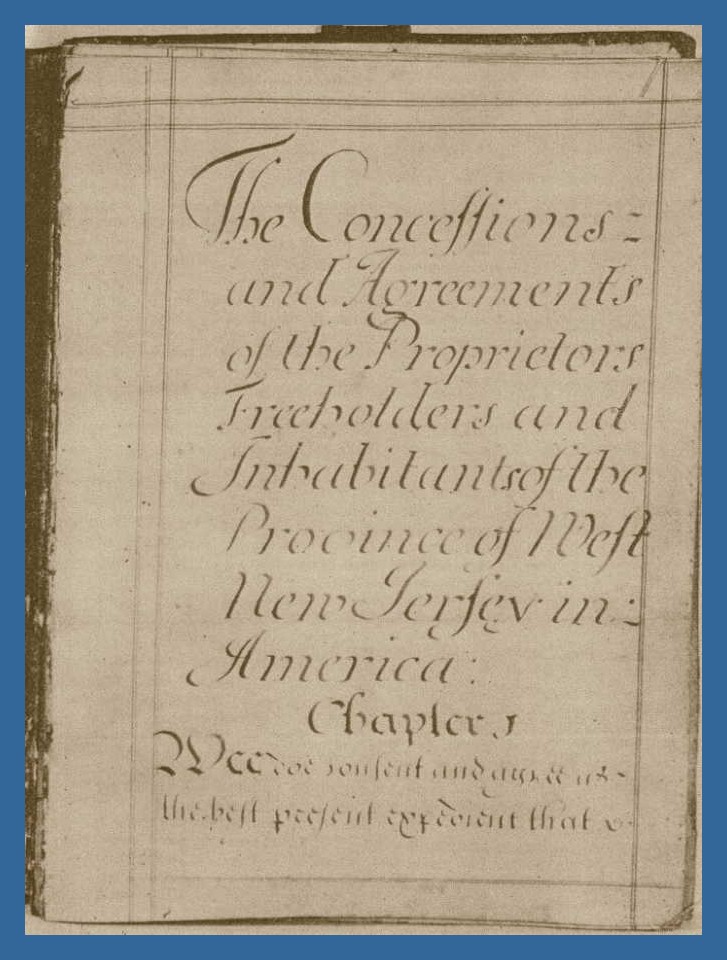 The Conceſsions =
and Agreements
of the Proprietors
Freeholders and
Inhabitants of the
Province of Weſt
New Jerſey in =
America:
Chapter 1
Wee doe conſent and agree as
the beſt preſent expedient that